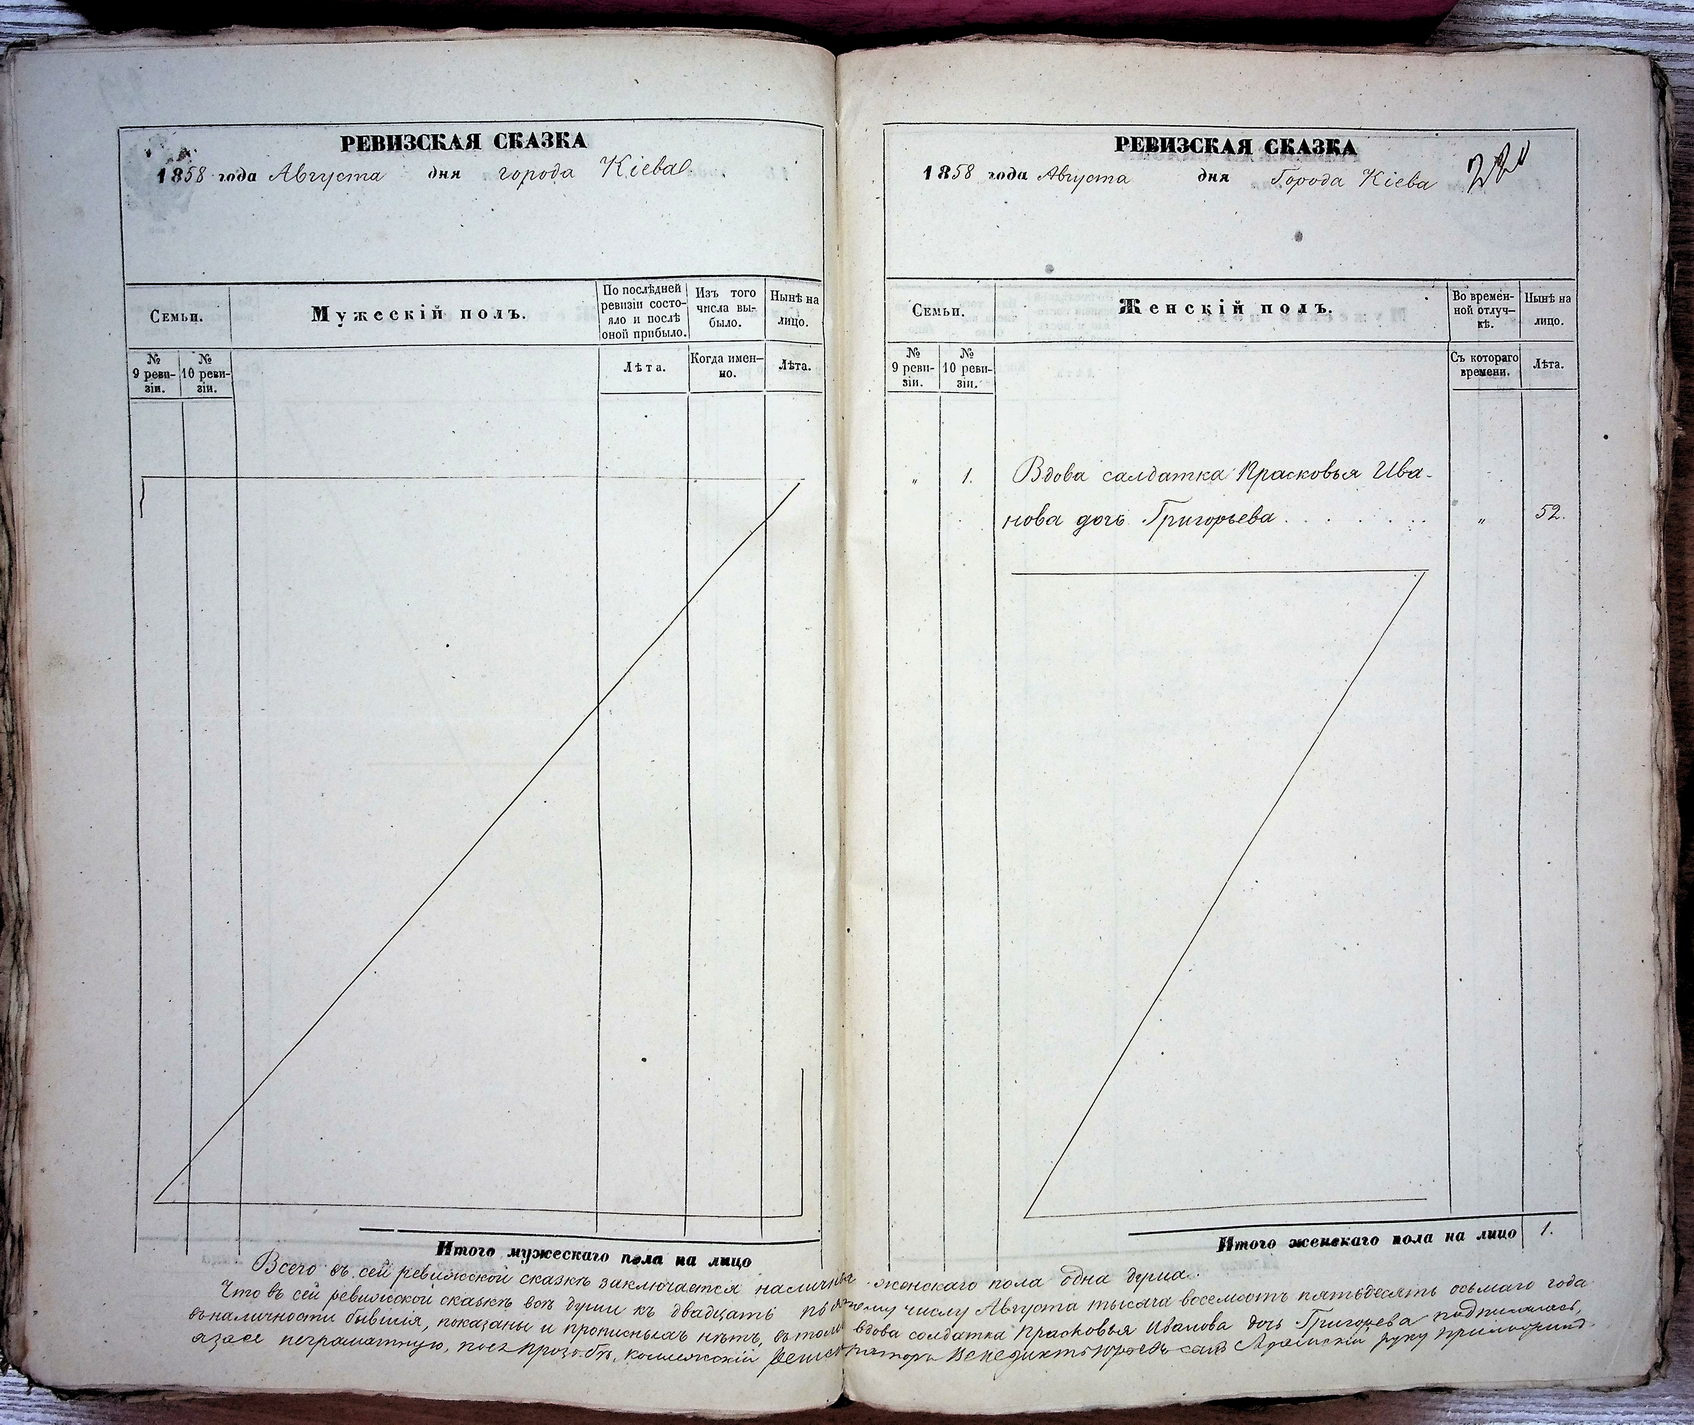 РЕВИЗСКАЯ СКАЗКА
1858 года Августа дня города Кіева.
Семьи.
Мужескій полъ.
По послѣдней ревизіи состо-
яло и послѣ оной прибыло.
Изъ того числа вы-
было.
Нынѣ на лицо.
№ 9 реви-
зіи.
№ 10 реви-
зіи.
Лѣта.
Когда имен-
но.
Лѣта.
Итого мужескаго пола на лицо
РЕВИЗСКАЯ СКАЗКА
1858 года Августа дня Города Кіева
Семьи.
Женскій полъ.
Во времен-
ной отлуч-
кѣ.
Нынѣ на лицо.
№ 9 реви-
зіи.
№ 10 реви-
зіи.
Съ котораго времени.
Лѣта.
„ 1. Вдова салдатка Прасковья Ива-
нова дочь Григорьева . . . . . . . „ 52.
Итого женскаго пола на лицо 1.
Всего въ сей ревижской сказкѣ заключается наличныхъ женскаго пола одна душа.
Что въ сей ревижской сказкѣ всѣ души къ двадцать числу Августа тысяча восемьсотъ пятьдесятъ осьмаго года
въ наличности бывшія, показаны и прописныхъ нѣтъ, въ томъ вдова солдатка Прасковья Иванова дочь Григорьева подписалась,
а за нее неграматную, по ея прозьбѣ, коллежскій Регистраторъ Венедиктъ руку приложилъ.